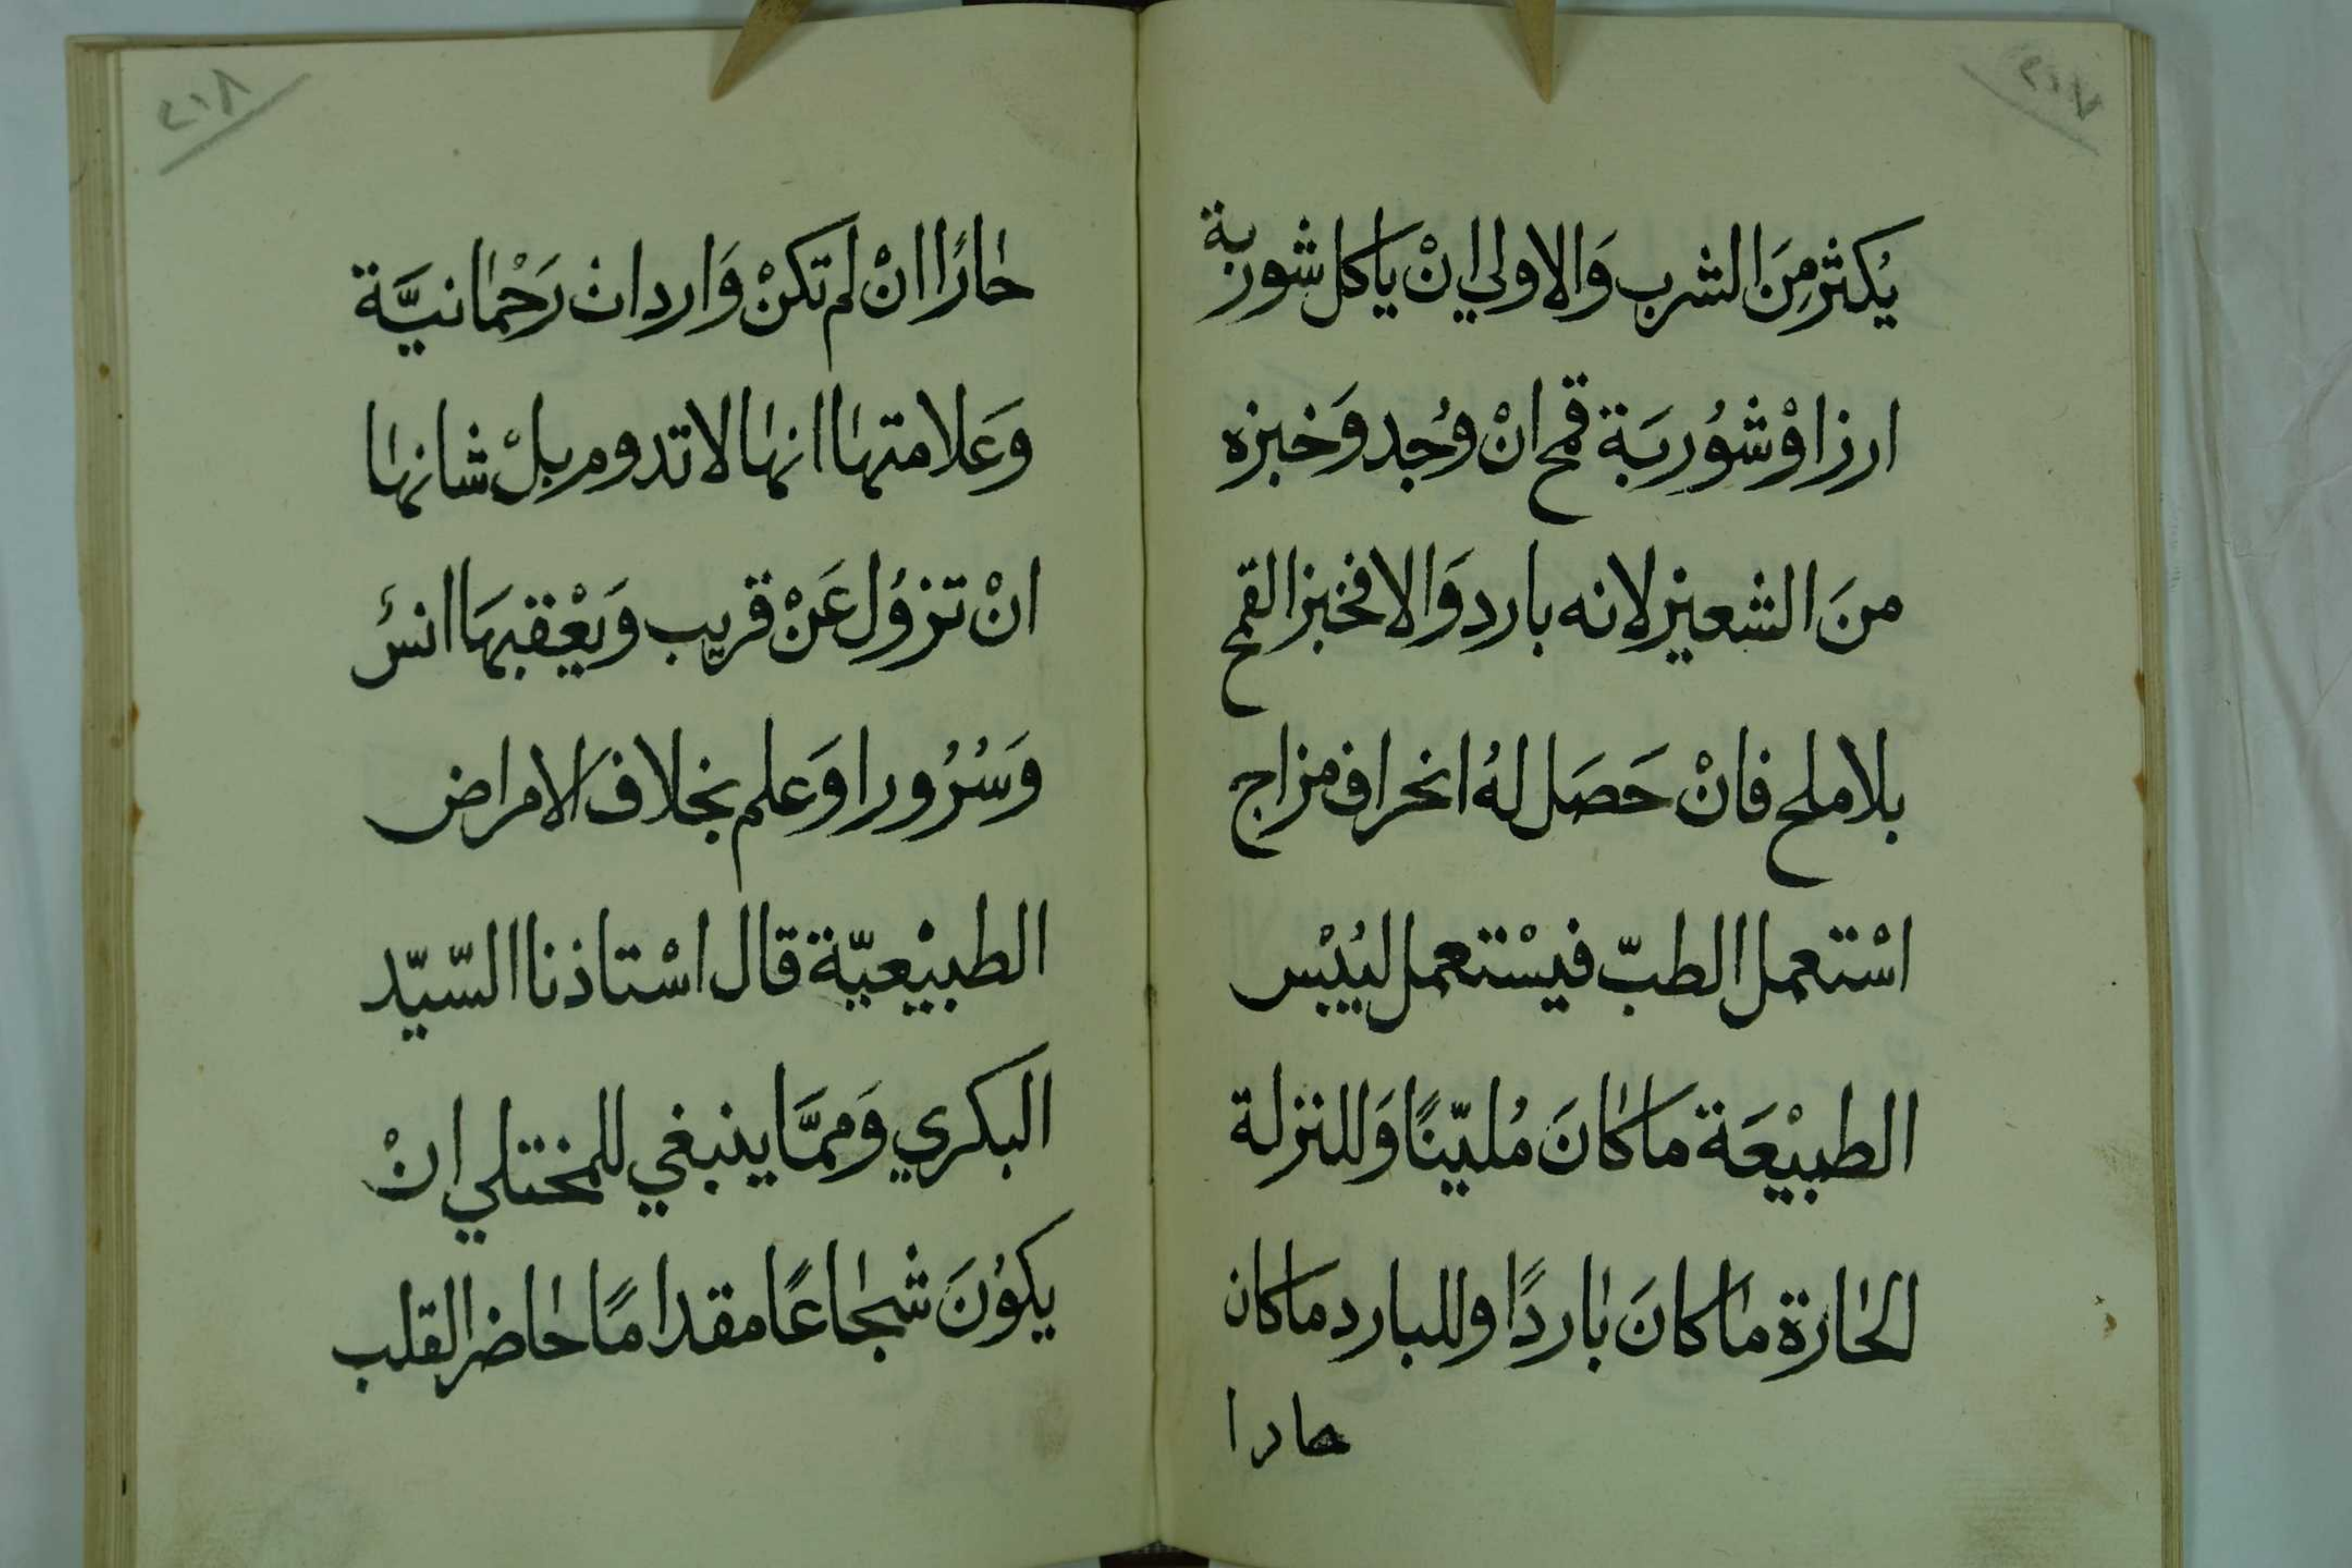 ٢١٧
يُكثر مِنَ الشرب وَالاولي انْ ياكل شوربة
ارز اوْ شوُربَة قمح انْ وُجد وَخبزه
منَ الشعيز لانه بارد وَالا فخبز القمح
بلا ملح فانْ حَصَل لهُ انحراف مزاج
اسْتعمل الطبّ فيسْتعمل ليُبْس
الطبيْعَة ما كانَ مُليّنًا وَللنزلة
الحارة ما كانَ باردًا وللبارد ما كان
حارا
٢١٨
حارًا انْ لم تكنْ وَاردات رَحْمانيَّة
وَعَلامتها انها لا تدوم بلْ شانها
انْ تزوُل عَنْ قريب وَيَعْقبهَا انسُ
وَسُرُورا وَعلم بخلافَ الامراض
الطبيْعيّة قال اسْتاذنا السّيّد
البكري وَممَّا ينبغي للمختلي انْ
يكوُنَ شجاعًا مقدامًا حاضر القلب